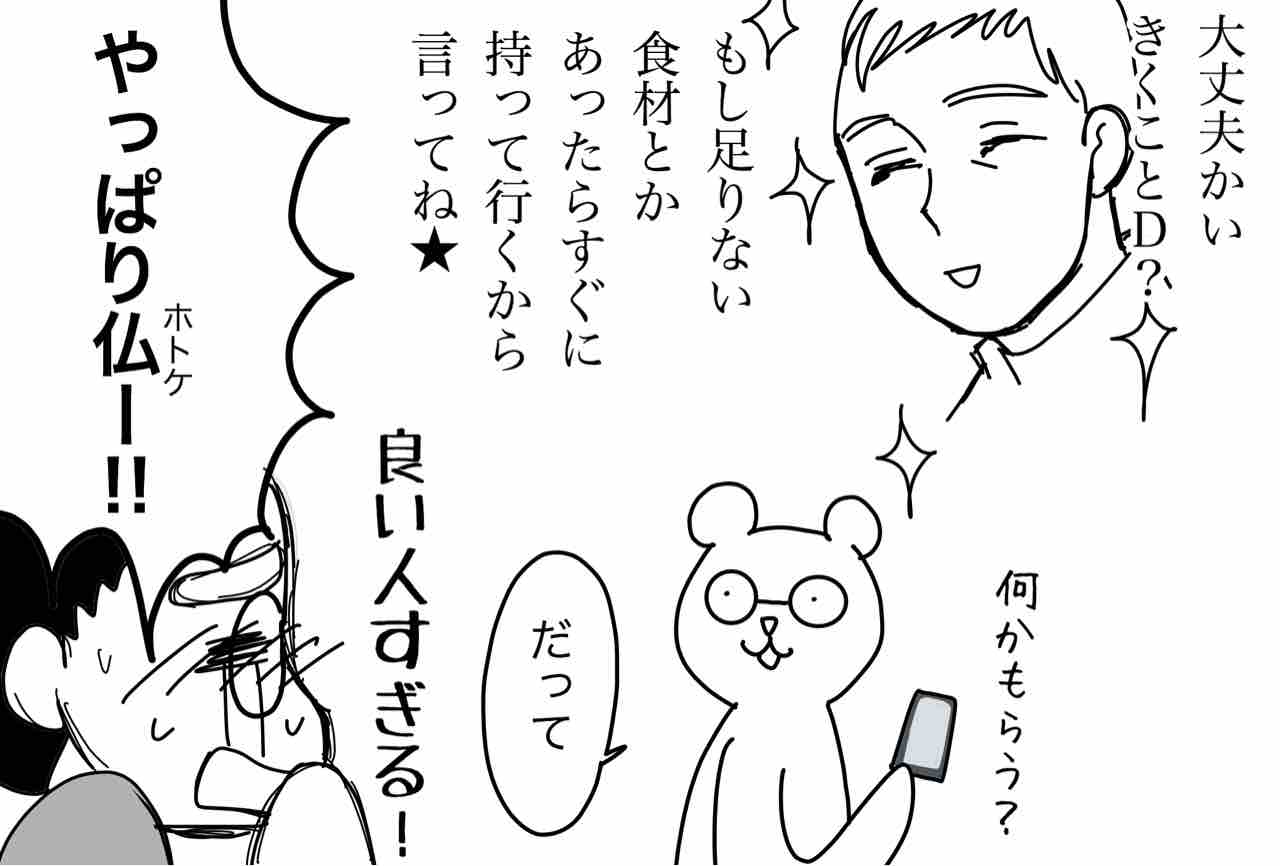 大丈夫かい
きくことD?
もし足りない
食材とか
あったらすぐに
持って行くから
言ってね★
何かもらう?
だって
良い人すぎる!
やっぱり仏ー!!
ホトケ